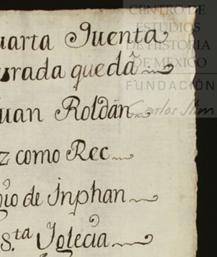 CENTRO DE
ESTUDIOS
DE HISTORIA
DE MÉXICO
FUNDACIÓN
Carlos Slim
uarta Quenta
urada quedã
uan Roldán
z como Rec
io de Inphan
s.ta Yglecia